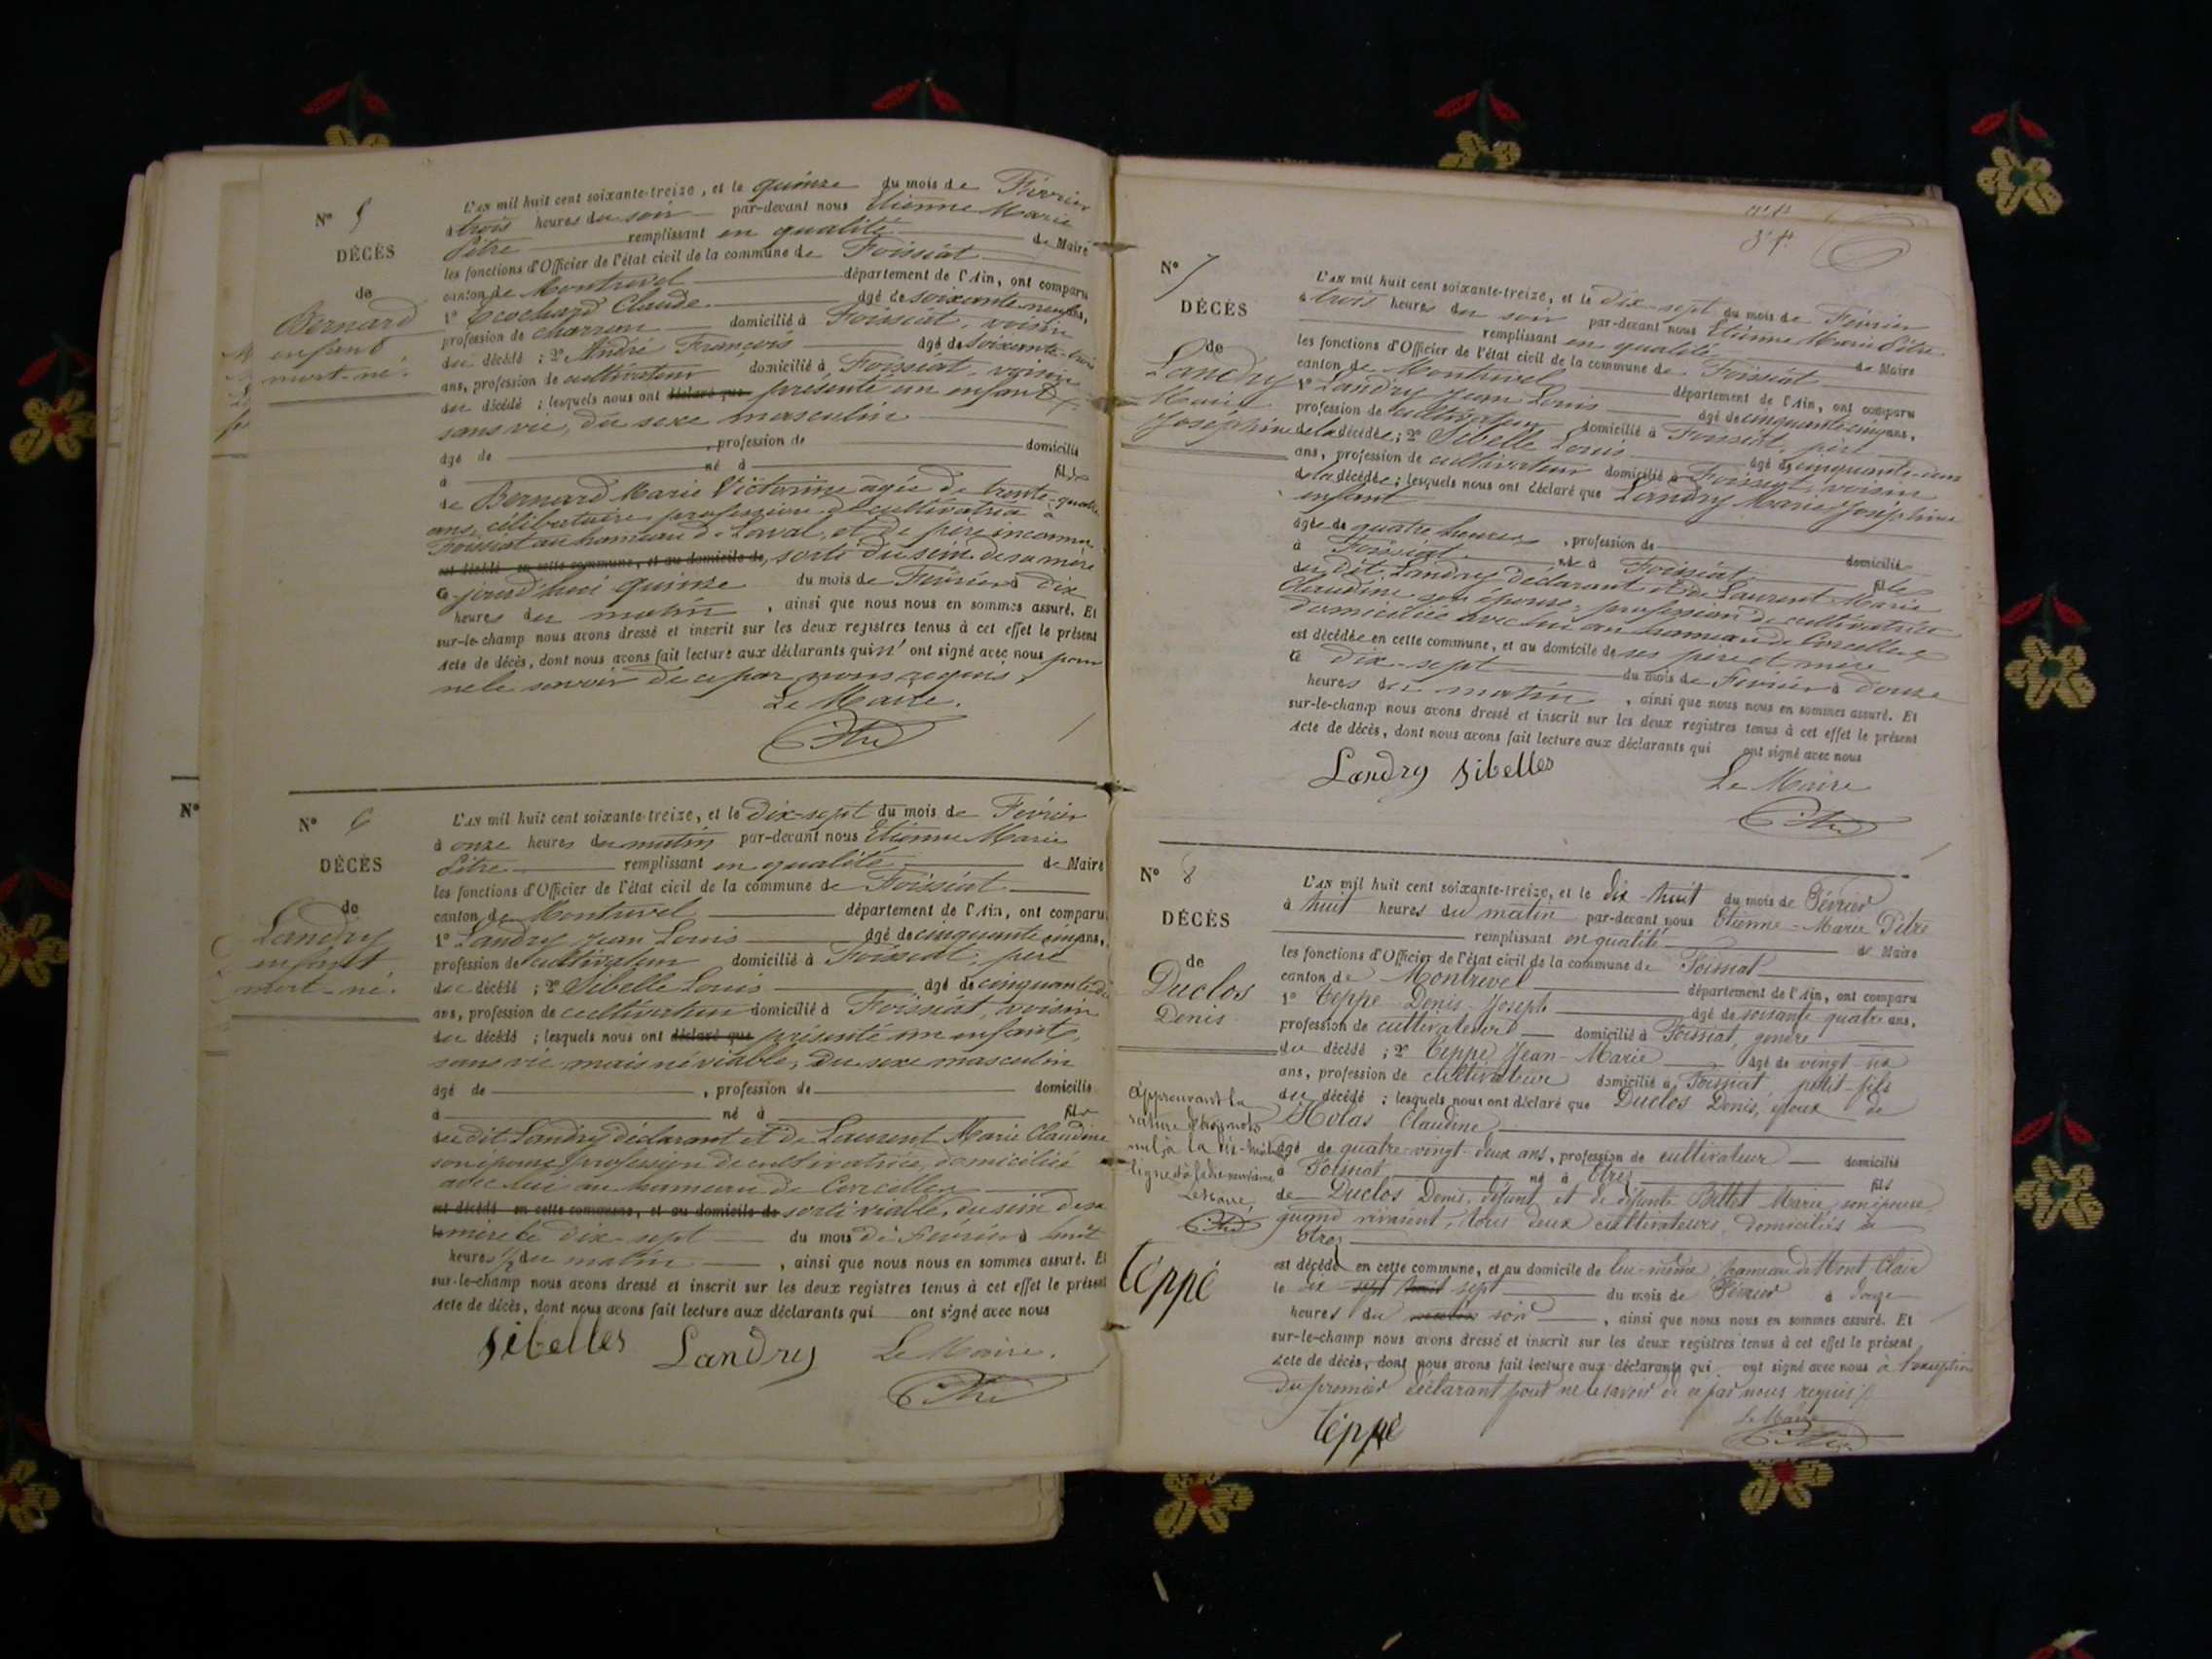 N° 5
DÉCÈS
de
Bernard
enfant
mort-né.
L'AN mil huit cent soixante-treize, et le quinze du mois de Février
à trois heures du soir par-devant nous Etienne Marie
Pitre remplissant en qualité de Maire
les fonctions d'Officier de l'état civil de la commune de Foissiat
canton de Montrevel département de l'Ain, ont comparu
1° Ecochard Claude âgé de soixante-neuf ans,
profession de charron domicilié à Foissiat, voisin
du décédé ; 2° André François âgé de soixante-trois
ans, profession de cultivateur domicilié à Foissiat, voisin
du décédé ; lesquels nous ont déclaré que présenté un enfant
sans vie, du sexe masculin
âgé de , profession de domicilié
à né à fils
de Bernard Marie Victorine âgée de trente-quatre
ans, célibataire, profession de cultivatrice à
Foissiat au hameau de Laval, et de père inconnu
est décédé en cette commune, et au domicile de, sorti du sein de sa mère
ce jourd'hui quinze du mois de Février à dix
heures du matin , ainsi que nous nous en sommes assuré. Et
sur-le-champ nous avons dressé et inscrit sur les deux registres tenus à cet effet le présent
acte de décès, dont nous avons fait lecture aux déclarants qui n'ont signé avec nous pour
ne le savoir de ce par nous requis.
Le Maire.
Pitre
N°
N° 6
DÉCÈS
de
Landry
enfant
mort-né.
L'AN mil huit cent soixante-treize, et le dix-sept du mois de Février
à onze heures du matin par-devant nous Etienne Marie
Pitre remplissant en qualité de Maire
les fonctions d'Officier de l'état civil de la commune de Foissiat
canton de Montrevel département de l'Ain, ont comparu
1° Landry Jean Louis âgé de cinquante cinq ans,
profession de cultivateur domicilié à Foissiat, père
du décédé ; 2° Sibelle Louis âgé de cinquante deux
ans, profession de cultivateur domicilié à Foissiat, voisin
du décédé ; lesquels nous ont déclaré que présenté un enfant,
sans vie mais né viable, du sexe masculin
âgé de , profession de domicilié
à né à fils
du dit Landry déclarant et de Laurent Marie Claudine
son épouse, profession de cultivatrice, domiciliée
avec lui au hameau de Corcelles
est décédé en cette commune, et au domicile de sorti viable, du sein de sa
mère le dix-sept du mois de Février à huit
heures 1/2 du matin , ainsi que nous nous en sommes assuré. Et
sur-le-champ nous avons dressé et inscrit sur les deux registres tenus à cet effet le présent
acte de décès, dont nous avons fait lecture aux déclarants qui ont signé avec nous
Sibelles Landry Le Maire.
Pitre
N° 7
DÉCÈS
de
Landry
Marie
Joséphine
L'AN mil huit cent soixante-treize, et le dix-sept du mois de Février
à trois heures du soir par-devant nous Etienne Marie Pitre
remplissant en qualité de Maire
les fonctions d'Officier de l'état civil de la commune de Foissiat
canton de Montrevel département de l'Ain, ont comparu
1° Landry Jean Louis âgé de cinquante cinq ans,
profession de cultivateur domicilié à Foissiat, père
de la décédée ; 2° Sibelle Louis âgé de cinquante-deux
ans, profession de cultivateur domicilié à Foissiat, voisin
de la décédée ; lesquels nous ont déclaré que Landry Marie Joséphine
enfant
âgée de quatre heures , profession de domicilié
à Foissiat née à Foissiat fille
du dit Landry déclarant et de Laurent Marie
Claudine son épouse, profession de cultivatrice
domiciliée avec lui au hameau de Corcelles
est décédée en cette commune, et au domicile de ses père et mère
ce dix-sept du mois de Février à douze
heures du matin , ainsi que nous nous en sommes assuré. Et
sur-le-champ nous avons dressé et inscrit sur les deux registres tenus à cet effet le présent
acte de décès, dont nous avons fait lecture aux déclarants qui ont signé avec nous
Landry Sibelles Le Maire
Pitre
N° 8
DÉCÈS
de
Duclos
Denis
L'AN mil huit cent soixante-treize, et le dix-huit du mois de Février
à huit heures du matin par-devant nous Etienne-Marie Pitre
remplissant en qualité de Maire
les fonctions d'Officier de l'état civil de la commune de Foissiat
canton de Montrevel département de l'Ain, ont comparu
1° Teppe Denis-Joseph âgé de soixante quatre ans,
profession de cultivateur domicilié à Foissiat, gendre
du décédé ; 2° Teppe Jean-Marie âgé de vingt-six
ans, profession de cultivateur domicilié à Foissiat, petit-fils
du décédé ; lesquels nous ont déclaré que Duclos Denis, époux de
Holas Claudine,
âgé de quatre-vingt-deux ans, profession de cultivateur domicilié
à Foissiat né à Etrez fils
de Duclos Denis, défunt, et de défunte Billet Marie, son épouse
quand vivaient, tous deux cultivateurs, domiciliés à
Etrez
est décédé en cette commune, et au domicile de lui-même hameau de Mont Clair
le dix sept huit sept du mois de Février à douze
heures du matin soir , ainsi que nous nous en sommes assuré. Et
sur-le-champ nous avons dressé et inscrit sur les deux registres tenus à cet effet le présent
acte de décès, dont nous avons fait lecture aux déclarants qui ont signé avec nous à l'exception
du premier déclarant pour ne le savoir de ce par nous requis
Le Maire
Teppe Pitre
Approuvant la
rature de trois mots
nul à la dix-huit
ligne et à la dix-neuvième
Le Maire,
Pitre
Teppe